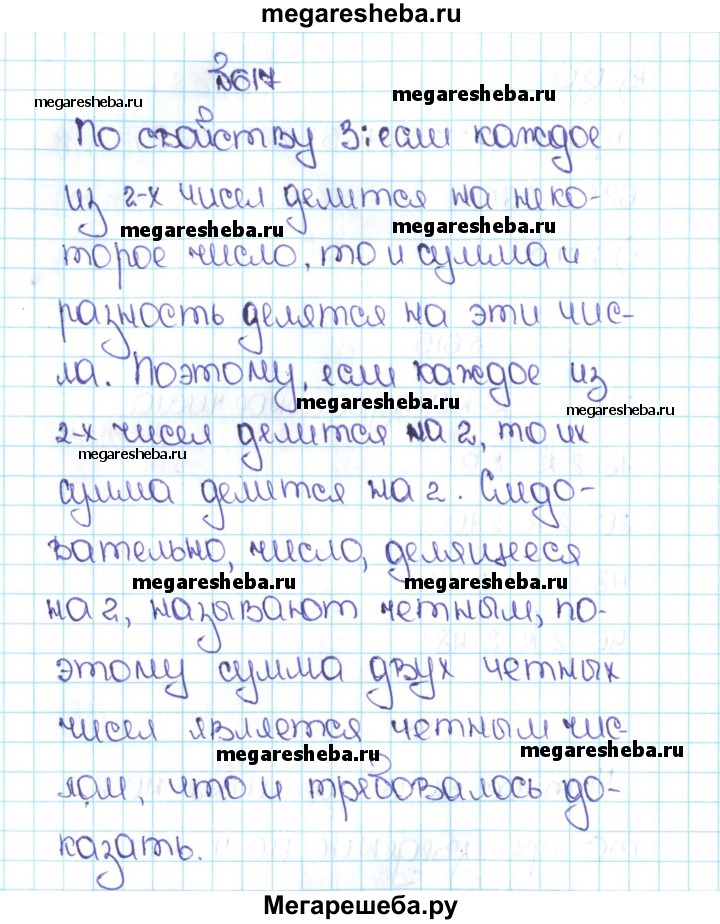 megaresheba.ru
№617
megaresheba.ru
megaresheba.ru
По свойству 3: если каждое
из 2-х чисел делится на неко-
megaresheba.ru
megaresheba.ru
торое число, то и сумма и
разность делятся на эти чис-
ла. Поэтому, если каждое из
megaresheba.ru
megaresheba.ru
2-х чисел делится на 2, то их
megaresheba.ru
сумма делится на 2. Следо-
вательно, число, делящееся
megaresheba.ru
megaresheba.ru
на 2, называют четным, по-
этому сумма двух четных
чисел является четным чис-
megaresheba.ru
megaresheba.ru
лом, что и требовалось до-
казать.
Мегарешеба.ру